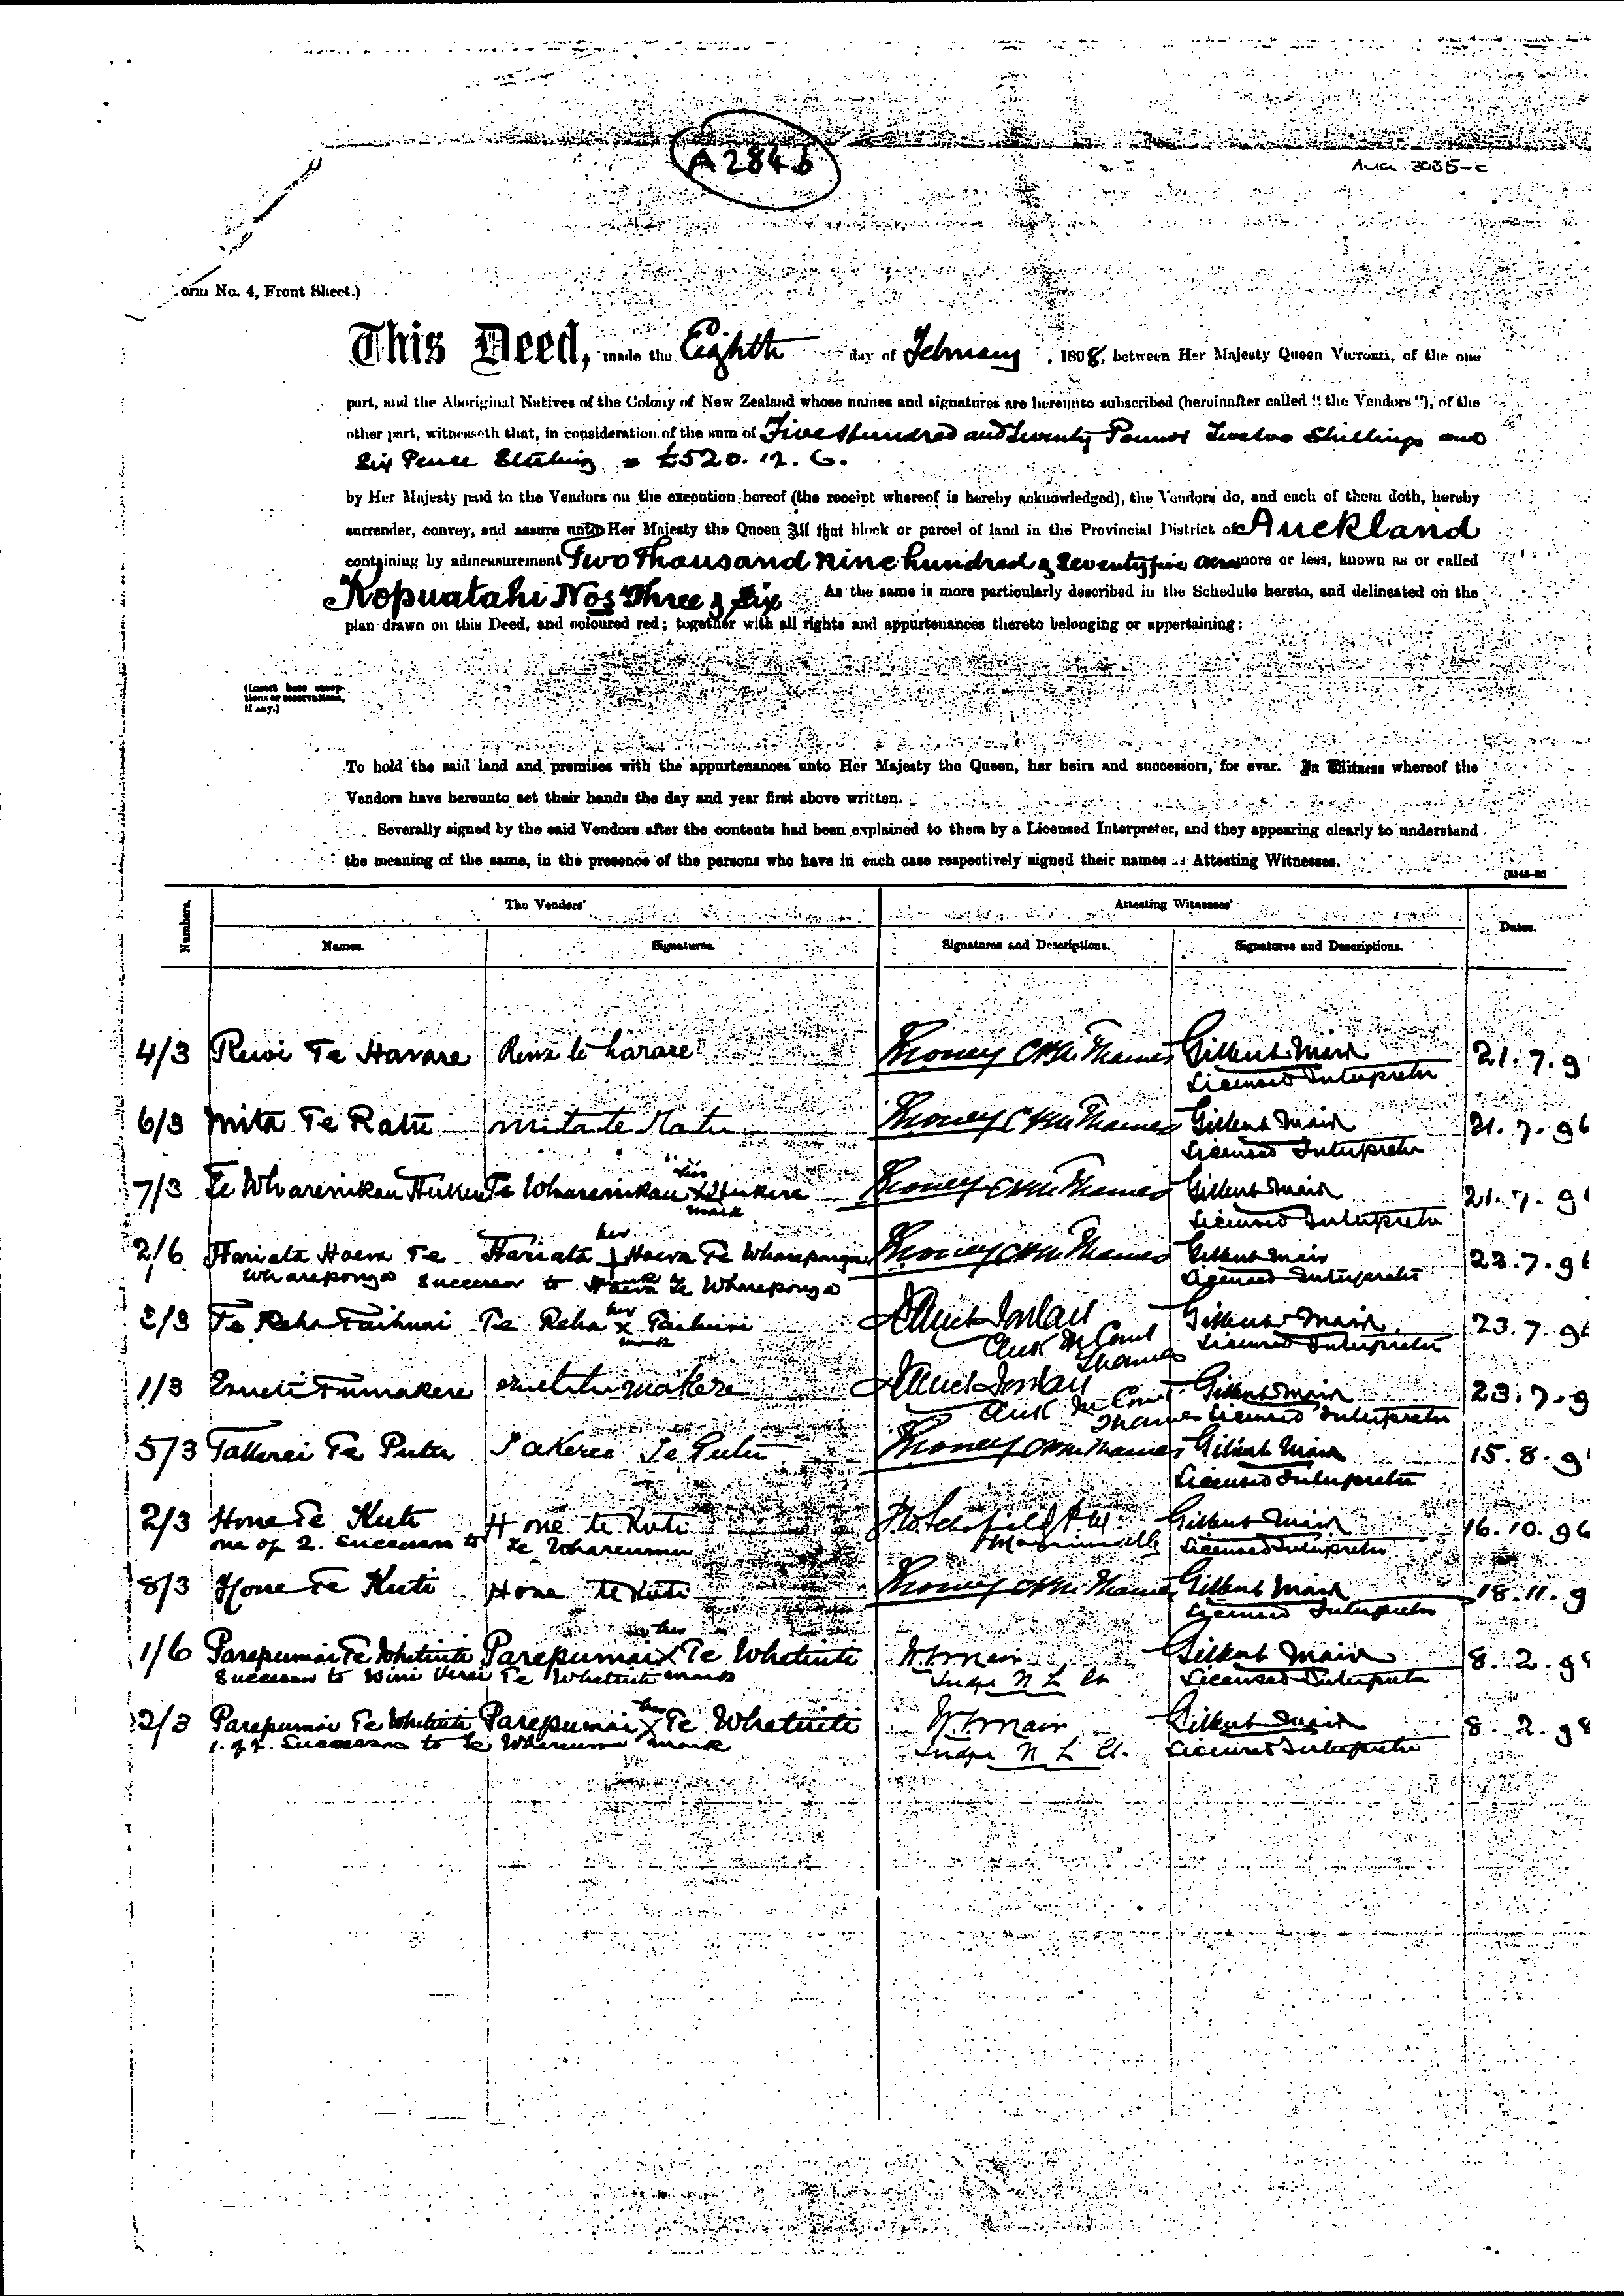 A 284.b
Auck 3035-c
orm No. 4, Front Sheet.)
This Deed, made the Eighth day of February, 1898, between Her Majesty Queen Victoria, of the one
part, and the Aboriginal Natives of the Colony of New Zealand whose names and signatures are hereunto subscribed (hereinafter called "the Vendors"), of the
other part, witnesseth that, in consideration of the sum of Five Hundred and Twenty Pounds Twelve Shillings and
Six Pence Sterling = £520.12.6.
by Her Majesty paid to the Vendors on the execution hereof (the receipt whereof is hereby acknowledged), the Vendors do, and each of them doth, hereby
surrender, convey, and assure unto Her Majesty the Queen All that block or parcel of land in the Provincial District of Auckland
containing by admeasurement Two Thousand nine hundred & Seventy five acres more or less, known as or called
Kopuatahi Nos Three & Six As the same is more particularly described in the Schedule hereto, and delineated on the
plan drawn on this Deed, and coloured red; together with all rights and appurtenances thereto belonging or appertaining:
(Insert here excep-
tions or reservations,
if any.)
To hold the said land and premises with the appurtenances unto Her Majesty the Queen, her heirs and successors, for ever. In Witness whereof the
Vendors have hereunto set their hands the day and year first above written.
Severally signed by the said Vendors after the contents had been explained to them by a Licensed Interpreter, and they appearing clearly to understand
the meaning of the same, in the presence of the persons who have in each case respectively signed their names as Attesting Witnesses.
Numbers. The Vendors' Attesting Witnesses' Dates.
Names. Signatures. Signatures and Descriptions. Signatures and Descriptions.
4/3 Rewi Te Harare Rewi te harare Thames Gilbert Mair 21.7.9
Licensed Interpreter
6/3 Mita Te Ratu mita te Ratu Thames Gilbert Mair 21.7.96
Licensed Interpreter
his
7/3 Te Wharenikau Hukere Te Wharenikau x Hukere Thames Gilbert Mair 21.7.9
mark Licensed Interpreter
her
2/6 Hariata Haera Te Hariata Haera Te Whareponga Thames Gilbert Mair 22.7.96
Whareponga Successor to Haera Te Whareponga Licensed Interpreter
her
3/3 Te Reha Taihuni Te Reha x Taihuni Gilbert Mair 23.7.96
mark Clerk M Court Licensed Interpreter
Thames
1/3 Erueti Tumakere erueti tumakere Gilbert Mair 23.7.9
Clerk M Court Thames Licensed Interpreter
5/3 Takerei Te Putu Takerei Te Putu Thames Gilbert Mair 15.8.9
Licensed Interpreter
2/3 Hone Te Kuti Hone te Kuti Gilbert Mair 16.10.96
one of 2. Successors to Te Whareumu Licensed Interpreter
8/3 Hone Te Kuti Hone te Kuti Thames Gilbert Mair 18.11.9
Licensed Interpreter
her
1/6 Parepumai Te Whetuiti Parepumai x Te Whetuiti W. Mair Gilbert Mair 8.2.98
Successor to Wini Kerei Te Whetuiti mark Judge N L Ct Licensed Interpreter
her
2/3 Parepumai Te Whetuiti Parepumai x Te Whetuiti W. Mair Gilbert Mair 8.2.98
1. of 2. Successors to Te Whareumu mark Judge N L Ct. Licensed Interpreter